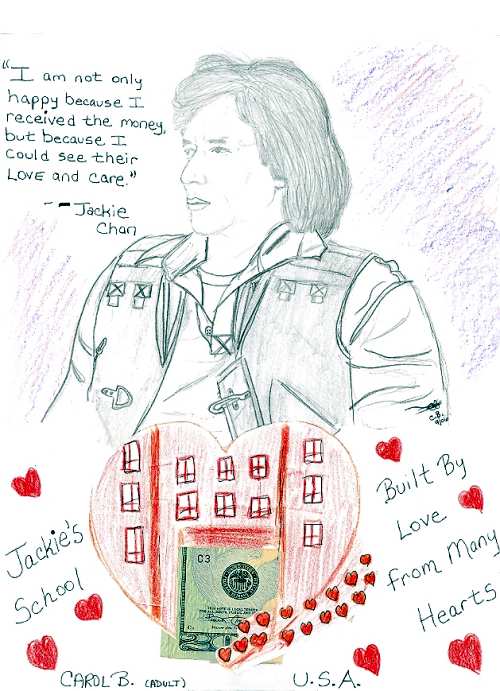 "I am not only
happy because I
received the money,
but because I
could see their
LOVE and care."
-- Jackie
Chan
C.B.
Jackie's
School
Built By
Love
From Many
Hearts
C3
20
CAROL B. (ADULT)
U.S.A.